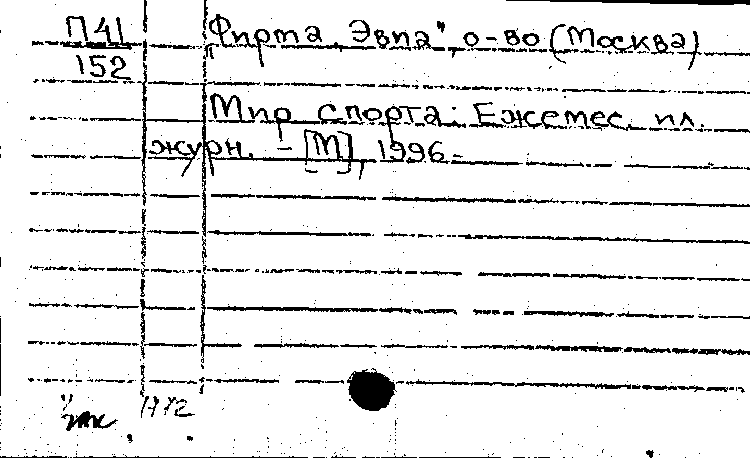 П41 Фирма „Эвпа", о-во (Москва)
152
Мир спорта: Ежемес. ил.
журн. - [М], 1996-